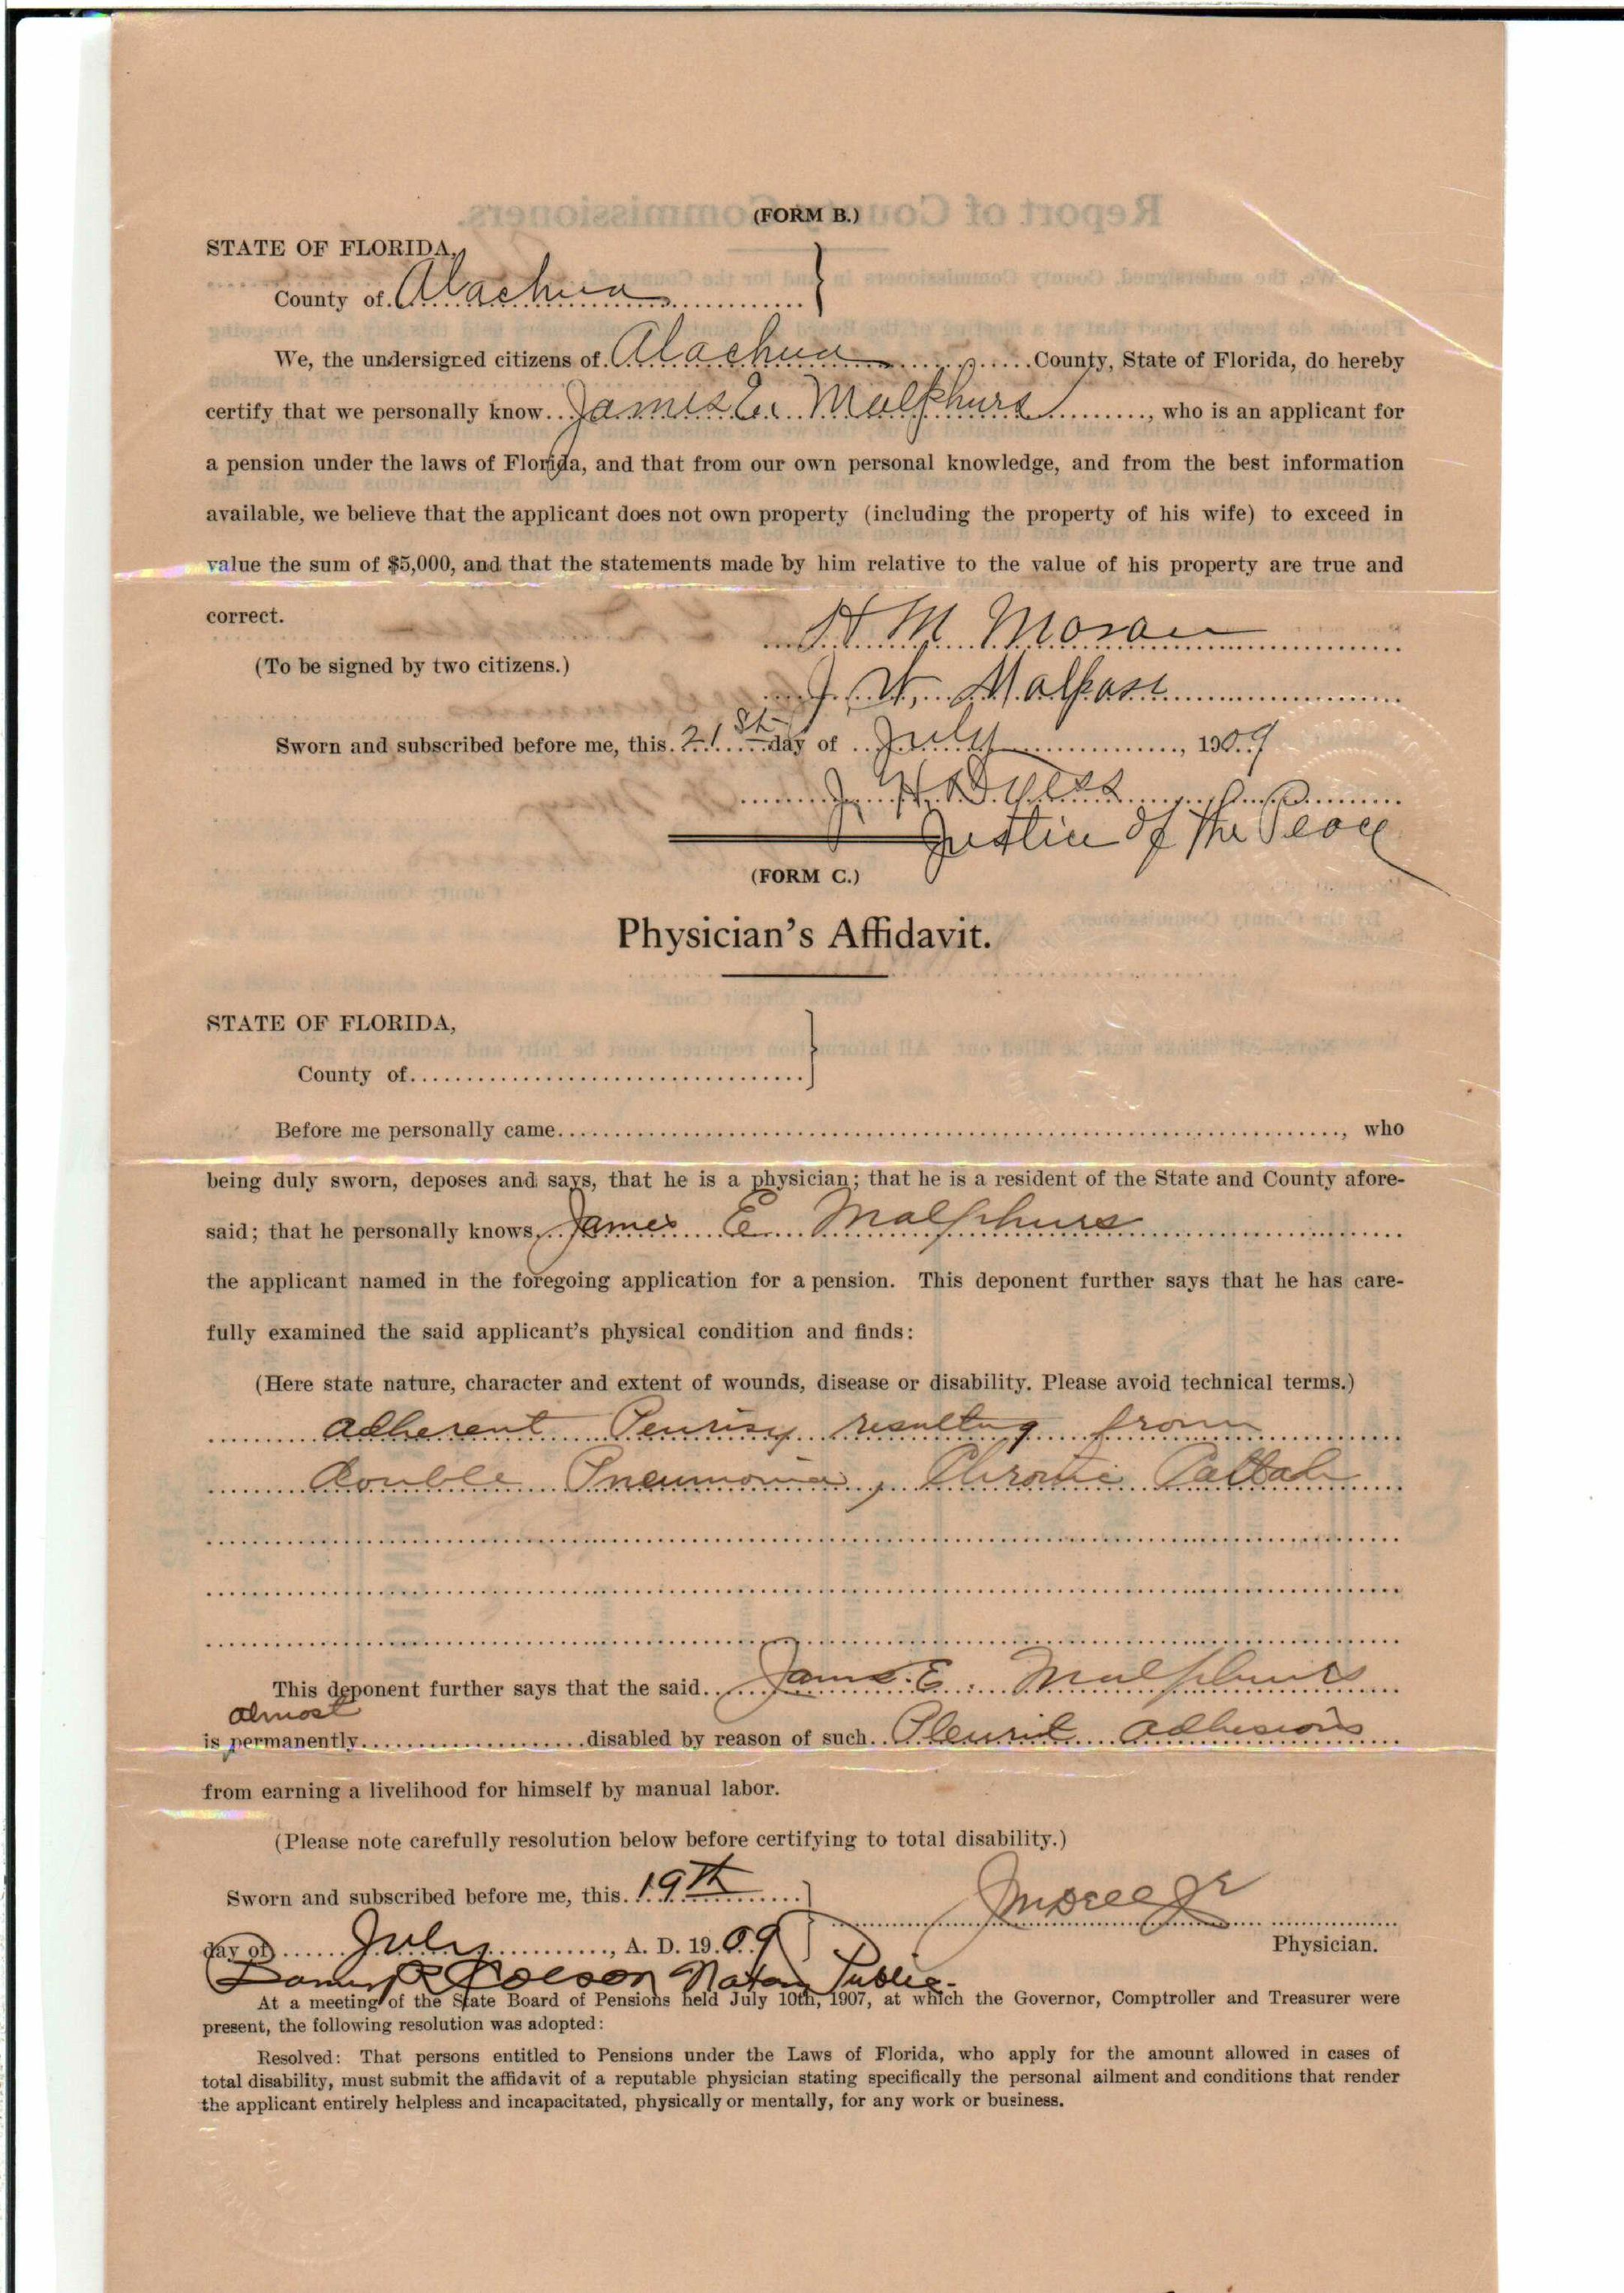 (FORM B.)
STATE OF FLORIDA,
County of Alachua
We, the undersigned citizens of Alachua County, State of Florida, do hereby
certify that we personally know James E. Malphurs, who is an applicant for
a pension under the laws of Florida, and that from our own personal knowledge, and from the best information
available, we believe that the applicant does not own property (including the property of his wife) to exceed in
value the sum of $5,000, and that the statements made by him relative to the value of his property are true and
correct.
H M Moran
(To be signed by two citizens.)
J. W. Malphurs
Sworn and subscribed before me, this 21st day of July, 1909
J. H. Dyess
Justice of the Peace
(FORM C.)
Physician's Affidavit.
STATE OF FLORIDA,
County of
Before me personally came, who
being duly sworn, deposes and says, that he is a physician; that he is a resident of the State and County afore-
said; that he personally knows James E Malphurs
the applicant named in the foregoing application for a pension. This deponent further says that he has care-
fully examined the said applicant's physical condition and finds:
(Here state nature, character and extent of wounds, disease or disability. Please avoid technical terms.)
adherent Peurisy resulting from
double Pneumonia, Chronic
This deponent further says that the said James E. Malphurs
almost
is permanently disabled by reason of such Pleurit adhesions
from earning a livelihood for himself by manual labor.
(Please note carefully resolution below before certifying to total disability.)
Sworn and subscribed before me, this 19th
day of July, A. D. 1909
Physician.
Colson Notary Public.
At a meeting of the State Board of Pensions held July 10th, 1907, at which the Governor, Comptroller and Treasurer were
present, the following resolution was adopted:
Resolved: That persons entitled to Pensions under the Laws of Florida, who apply for the amount allowed in cases of
total disability, must submit the affidavit of a reputable physician stating specifically the personal ailment and conditions that render
the applicant entirely helpless and incapacitated, physically or mentally, for any work or business.